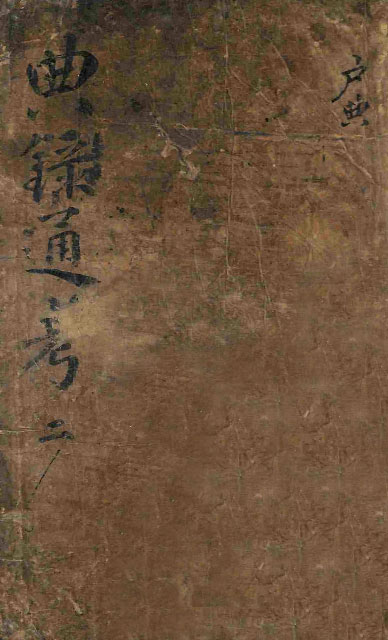 戶典
典錄通考 二